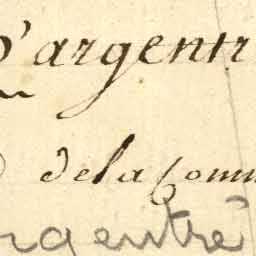 D'argentr
de la Comm
rgentré